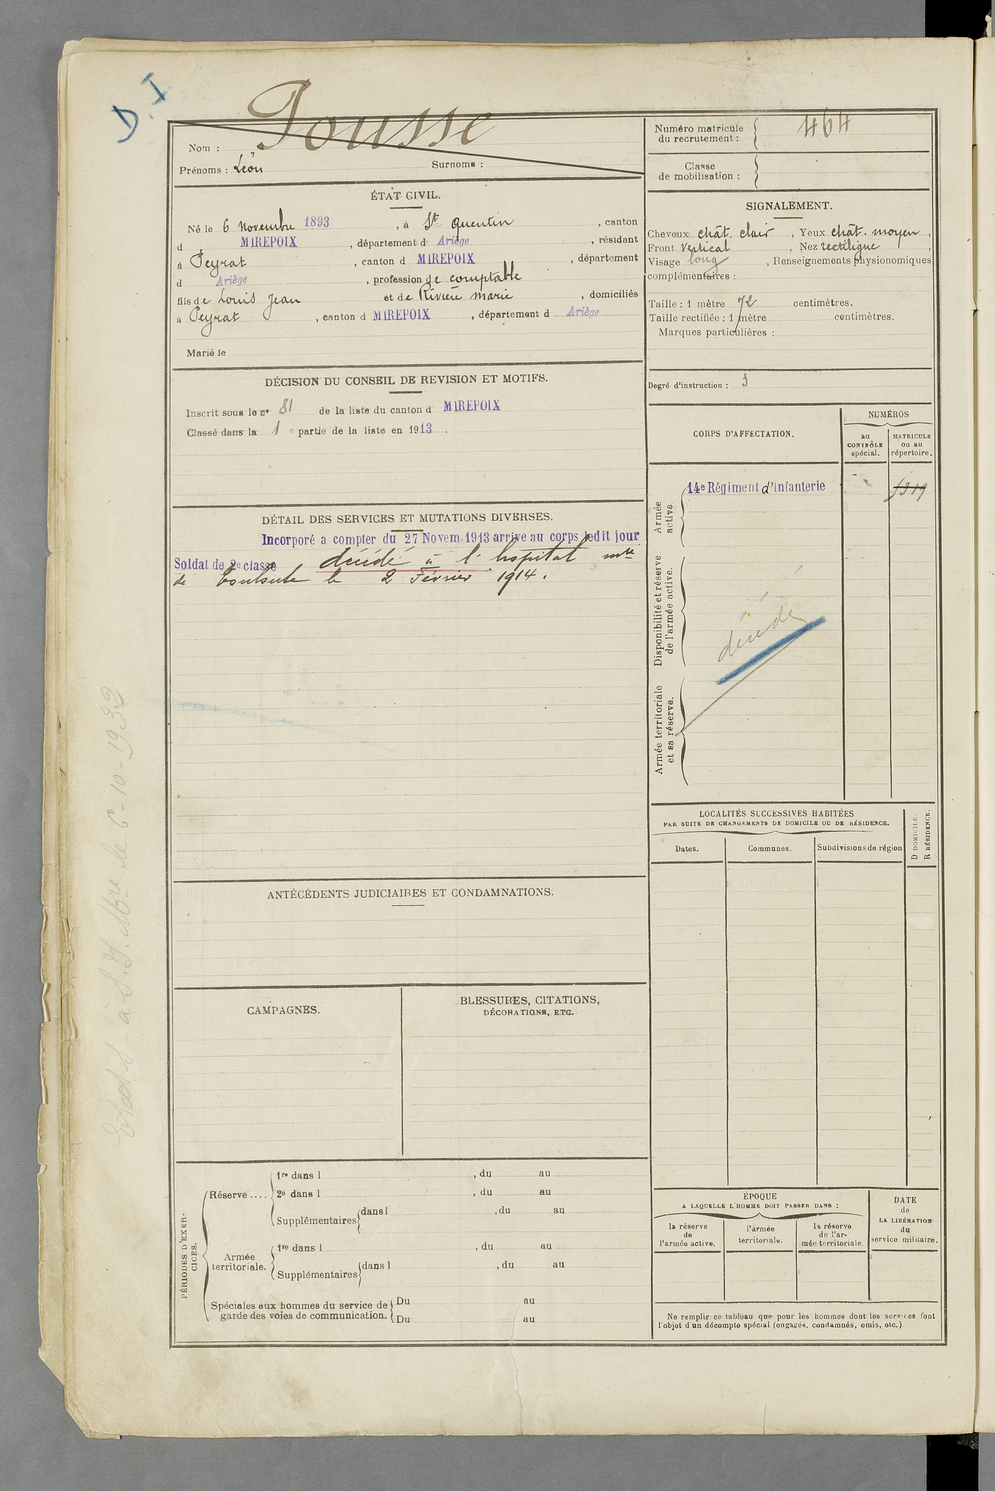 D.I
Pousse
Nom :
Prénoms : Léon Surnoms :
Numéro matricule du recrutement : 464
Classe de mobilisation :
ÉTAT CIVIL.
Né le 6 Novembre 1893, à St Quentin, canton
d MIREPOIX, département d Ariège, résidant
à Peyrat, canton d MIREPOIX, département
d Ariège, profession de comptable
fils de Louis Jean et de Rivière Marie, domiciliés
à Peyrat, canton d MIREPOIX, département d Ariège
Marié le
SIGNALEMENT.
Cheveux chât. clair, Yeux chât. moyen,
Front vertical, Nez rectiligne
Visage long, Renseignements physionomiques
complémentaires :
Taille : 1 mètre 72 centimètres.
Taille rectifiée : 1 mètre centimètres.
Marques particulières :
Degré d'instruction : 3
DÉCISION DU CONSEIL DE REVISION ET MOTIFS.
Inscrit sous le nº 81 de la liste du canton d MIREPOIX
Classé dans la 1 e partie de la liste en 1913.
CORPS D'AFFECTATION.
NUMÉROS
au CONTRÔLE spécial.
MATRICULE ou au répertoire.
Armée active.
14e Régiment d'Infanterie
Disponibilité et réserve de l'armée active.
décédé
Armée territoriale et sa réserve.
DÉTAIL DES SERVICES ET MUTATIONS DIVERSES.
Incorporé a compter du 27 Novem. 1913 arrive au corps ledit jour
Soldat de 2e classe décédé à l'hopital mre
de Toulouse le 2 Février 1914.
LOCALITÉS SUCCESSIVES HABITÉES
PAR SUITE DE CHANGEMENTS DE DOMICILE OU DE RÉSIDENCE.
Dates.
Communes.
Subdivisions de région
D DOMICILE.
R RÉSIDENCE.
ANTÉCÉDENTS JUDICIAIRES ET CONDAMNATIONS.
CAMPAGNES.
BLESSURES, CITATIONS,
DÉCORATIONS, ETC.
PÉRIODES D'EXERCICES.
Réserve ....
1re dans l , du au
2e dans l , du au
Supplémentaires dans l , du au
Armée territoriale.
1re dans l , du au
Supplémentaires dans l , du au
Spéciales aux hommes du service de garde des voies de communication.
Du au
Du au
ÉPOQUE
A LAQUELLE L'HOMME DOIT PASSER DANS :
la réserve de l'armée active.
l'armée territoriale.
la réserve de l'armée territoriale.
DATE de LA LIBÉRATION du service militaire.
Ne remplir ce tableau que pour les hommes dont les services font
l'objet d'un décompte spécial (engagés, condamnés, omis, etc.)
le 6-10-1932